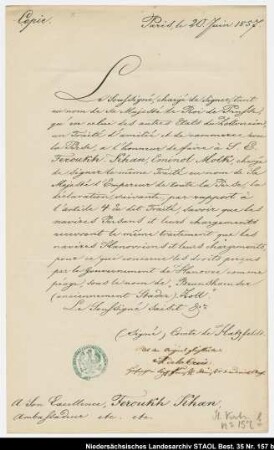 Copie.
Paris, le 20 Juin 1857.
Le Soussigné, chargé de signer, tant
au nom de Sa Majesté le Roi de Prusse,
qu'en celui des autres Etats du Zollverein,
un Traité d'amitié et de commerce avec
la Perse, a l'honneur de faire à S. E.
Feroukh Khan, Eminol Molk, chargé
de signer le même Traité au nom de Sa
Majesté l'Empereur de toute la Perse, la
déclaration suivante, par rapport à
l'article 4 du dit Traité, savoir que les
navires Persans et leurs chargements
recevront le même traitement que les
navires Hanovriens et leurs chargements,
pour ce qui concerne les droits perçus
par le Gouvernement de Hanovre comme
péage, sous le nom de Brunshausen
(anciennement Stade) Zoll.
Le Soussigné saisit &c.
(Signé) Comte de Hatzfeldt.
A Son Excellence, Feroukh Khan,
Ambassadeur etc. etc.
Niedersächsisches Landesarchiv STAOL Best. 35 Nr. 157 b